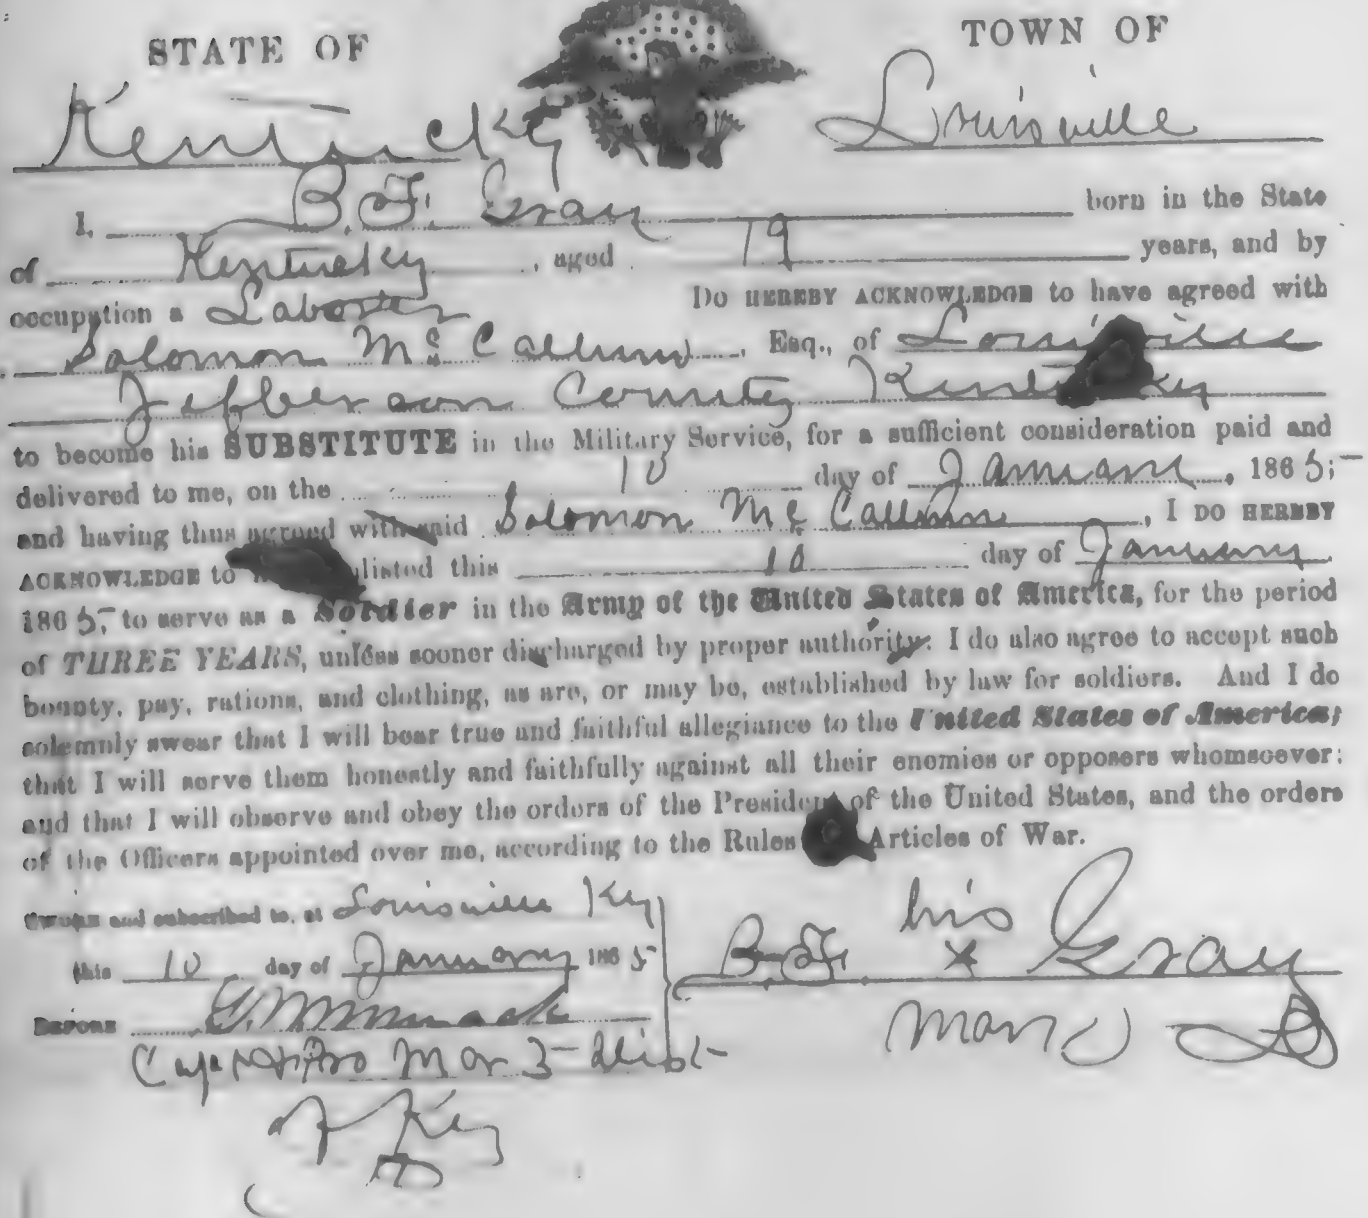 STATE OF
TOWN OF
Kentucky
Louisville
I, B. F. Gray born in the State
of Kentucky, aged 19 years, and by
occupation a Laborer Do HEREBY ACKNOWLEDGE to have agreed with
Solomon Mc Callum, Esq., of Louisville
Jefferson County Kentucky
to become his SUBSTITUTE in the Military Service, for a sufficient consideration paid and
delivered to me, on the 10 day of January, 1865;
and having thus agreed with said Solomon Mc Callum, I DO HEREBY
ACKNOWLEDGE to listed this 10 day of January
1865, to serve as a Soldier in the Army of the United States of America, for the period
of THREE YEARS, unless sooner discharged by proper authority: I do also agree to accept such
bounty, pay, rations, and clothing, as are, or may be, established by law for soldiers. And I do
solemnly swear that I will bear true and faithful allegiance to the United States of America;
that I will serve them honestly and faithfully against all their enemies or opposers whomsoever;
and that I will observe and obey the orders of the President of the United States, and the orders
of the Officers appointed over me, according to the Rules Articles of War.
Sworn and subscribed to, at Louisville Ky
this 10 day of January 1865
BEFORE
B. F. his x Gray
mark
Capt & Pro Mar 5 Dist
Ky